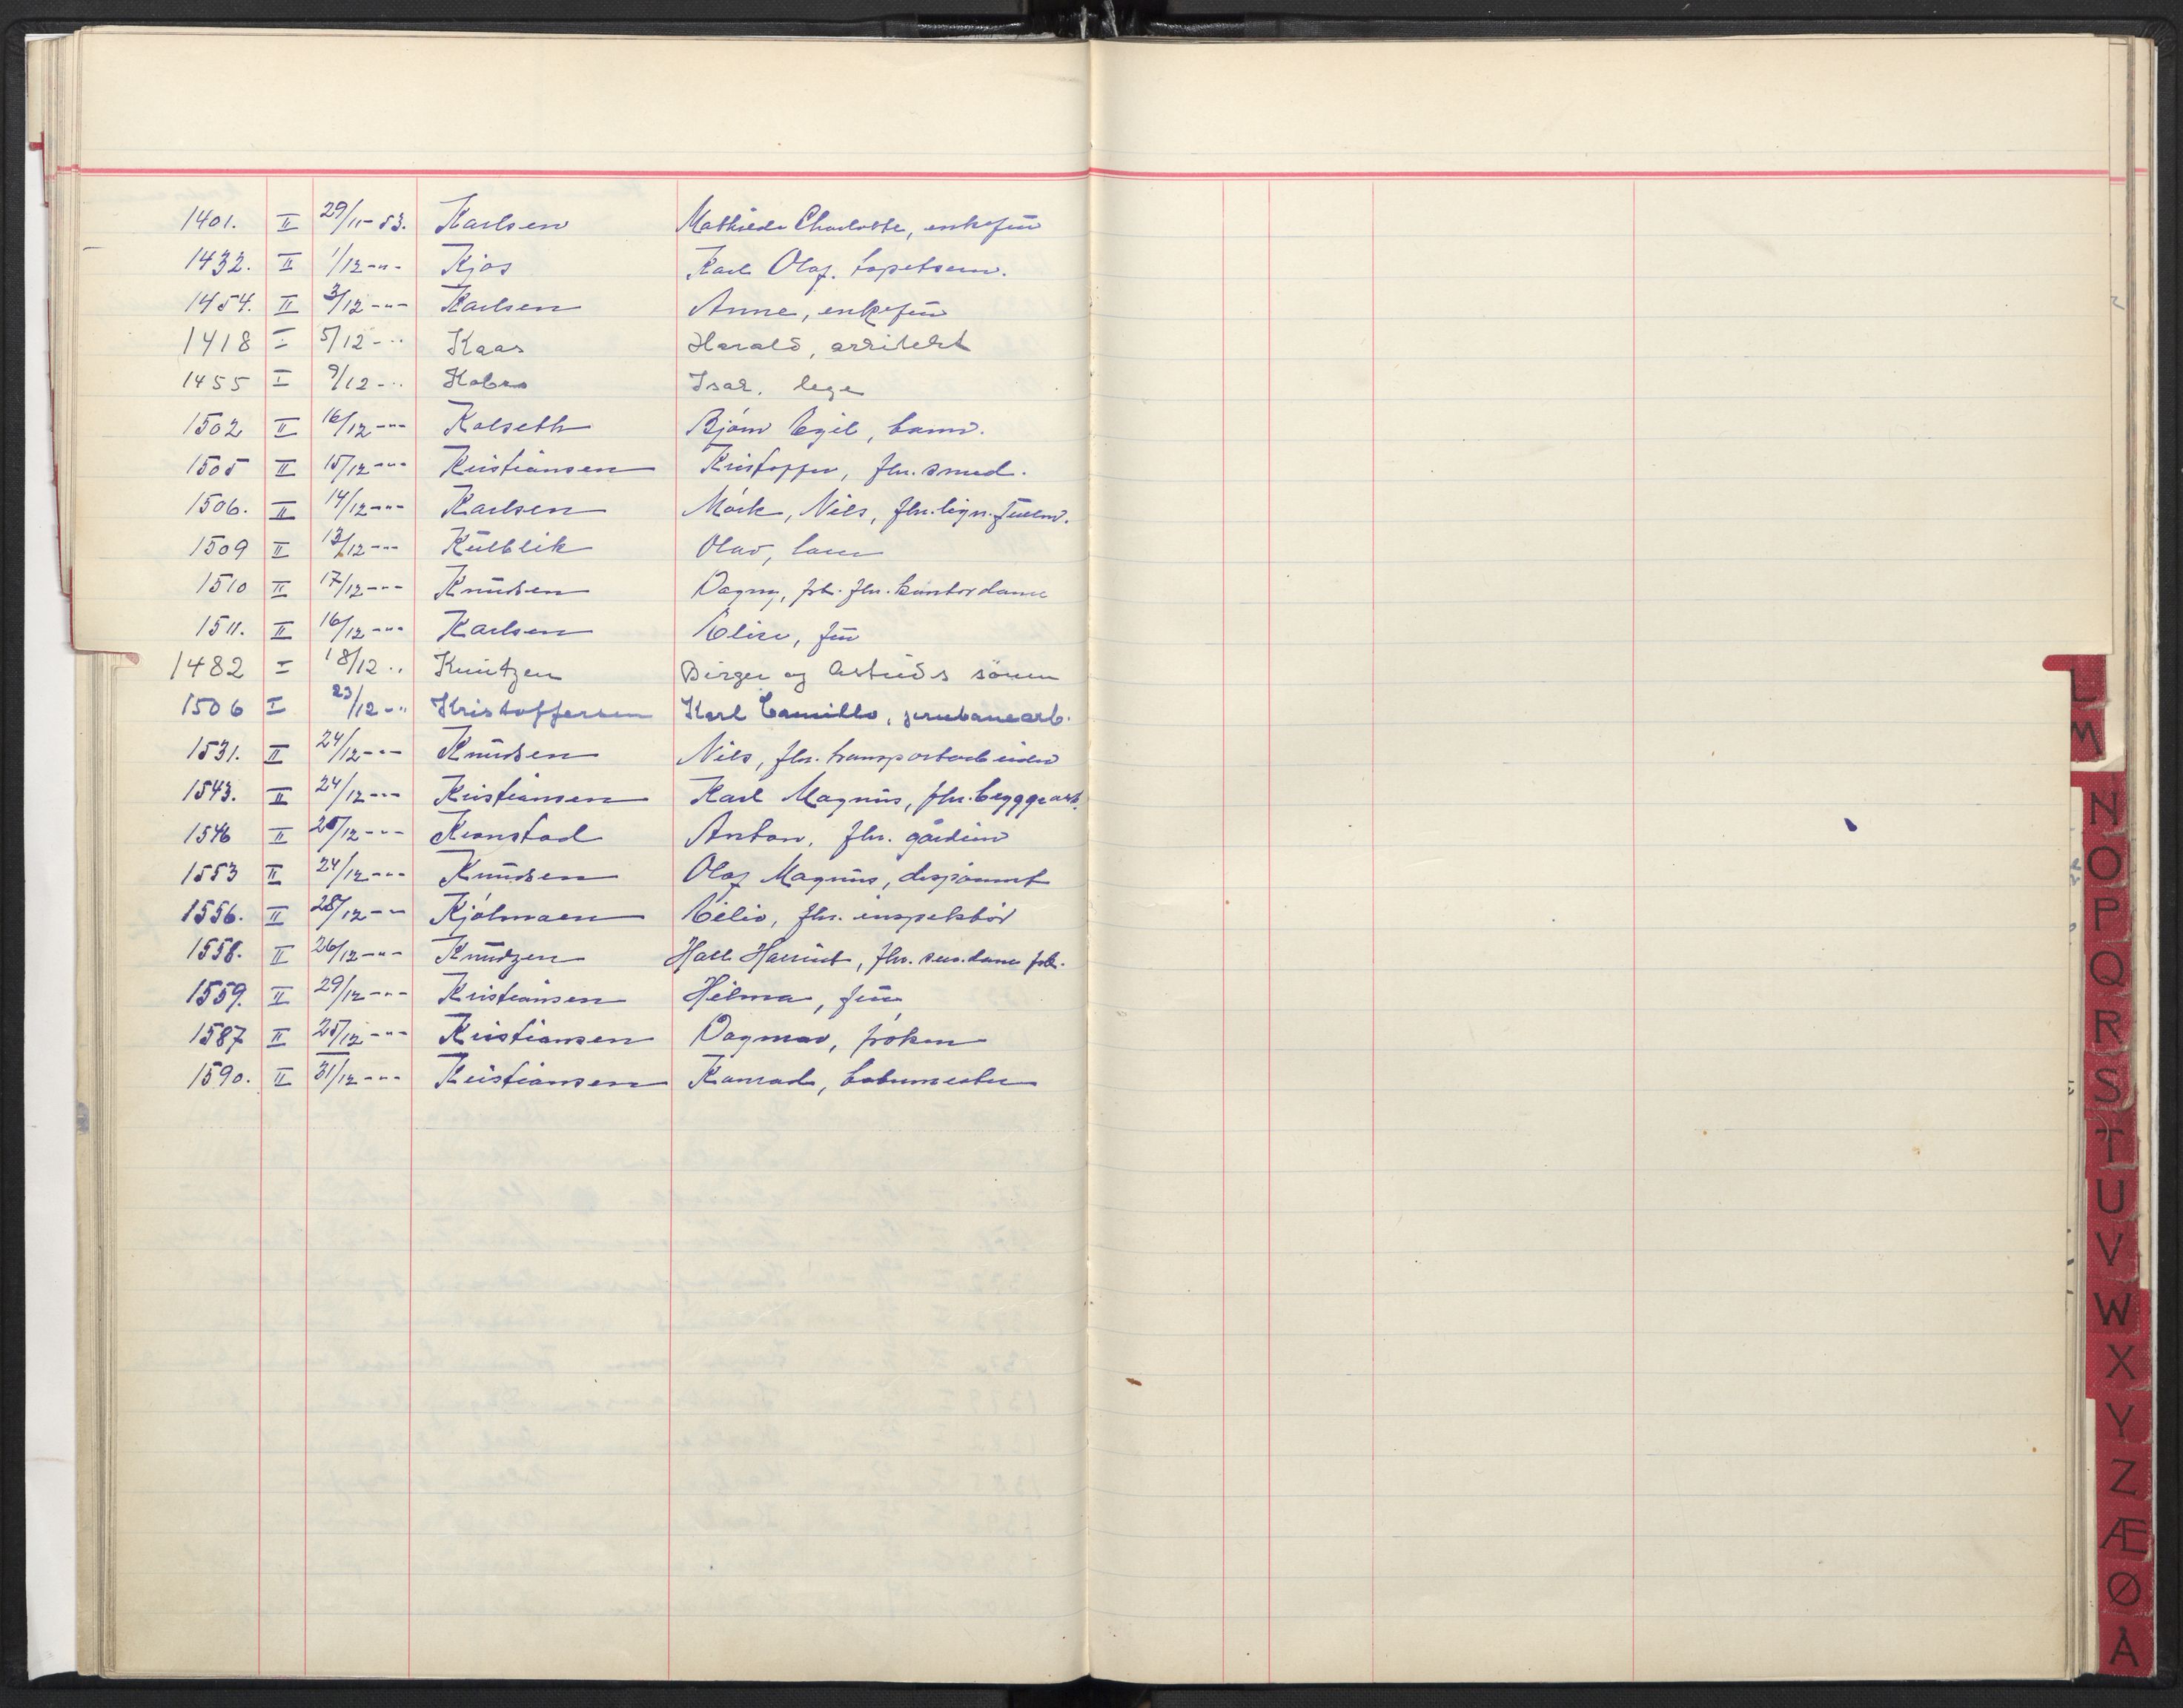 1401. II 29/11-53. Karlsen Mathilde Charlotte, enkefru
1432. II 1/12-"- Kjos Karl Olaf. tapetserer.
1454. II 3/12-"- Karlsen Anne, enkefru
1418 I 5/12-" Kaas Harald, arkitekt
1455 I 9/12-" Kobro Isak. lege
1502 II 16/12-"- Kolseth Bjørn Egil, barn.
1505 II 15/12-"- Kristiansen Kristoffer, fhv. smed.
1506. II 14/12-"- Karlsen Mörk, Nils, fhv. lign. fullm.
1509 II 13/12-"- Kulblik Olav, barn
1510 II 17/12-"- Knudsen Dagny, frk. fhv. kontordame
1511. II 16/12-"- Karlsen Elise, fru
1482 I 18/12 " Knutzen Birger og Astrids sønn
1506 I 23/12-" Kristoffersen Karl Camillo, jernbanearb.
1531. II 24/12-"- Knudsen Nils, fhv. transportarbeider
1543. II 24/12-"- Kristiansen Karl Magnus, fhv. byggearb.
1546 II 20/12-"- Kronstad Anton, fhv. gårdbr.
1553 II 24/12-"- Knudsen Olaf Magnus, disponent
1556. II 28/12-"- Kjølmoen fhv. inspektør
1558. II 26/12-"- Knudzen Hall Harriet, fhv. dame frk.
1559. II 29/12-"- Kristiansen Hilma, fru
1587 II 25/12-"- Kristiansen Dagmar, frøken
1590. II 31/12-"- Kristiansen Konrad,
L
M
N
O
P
Q
R
S
T
U
V
W
X
Y
Z
Æ
Ø
Å